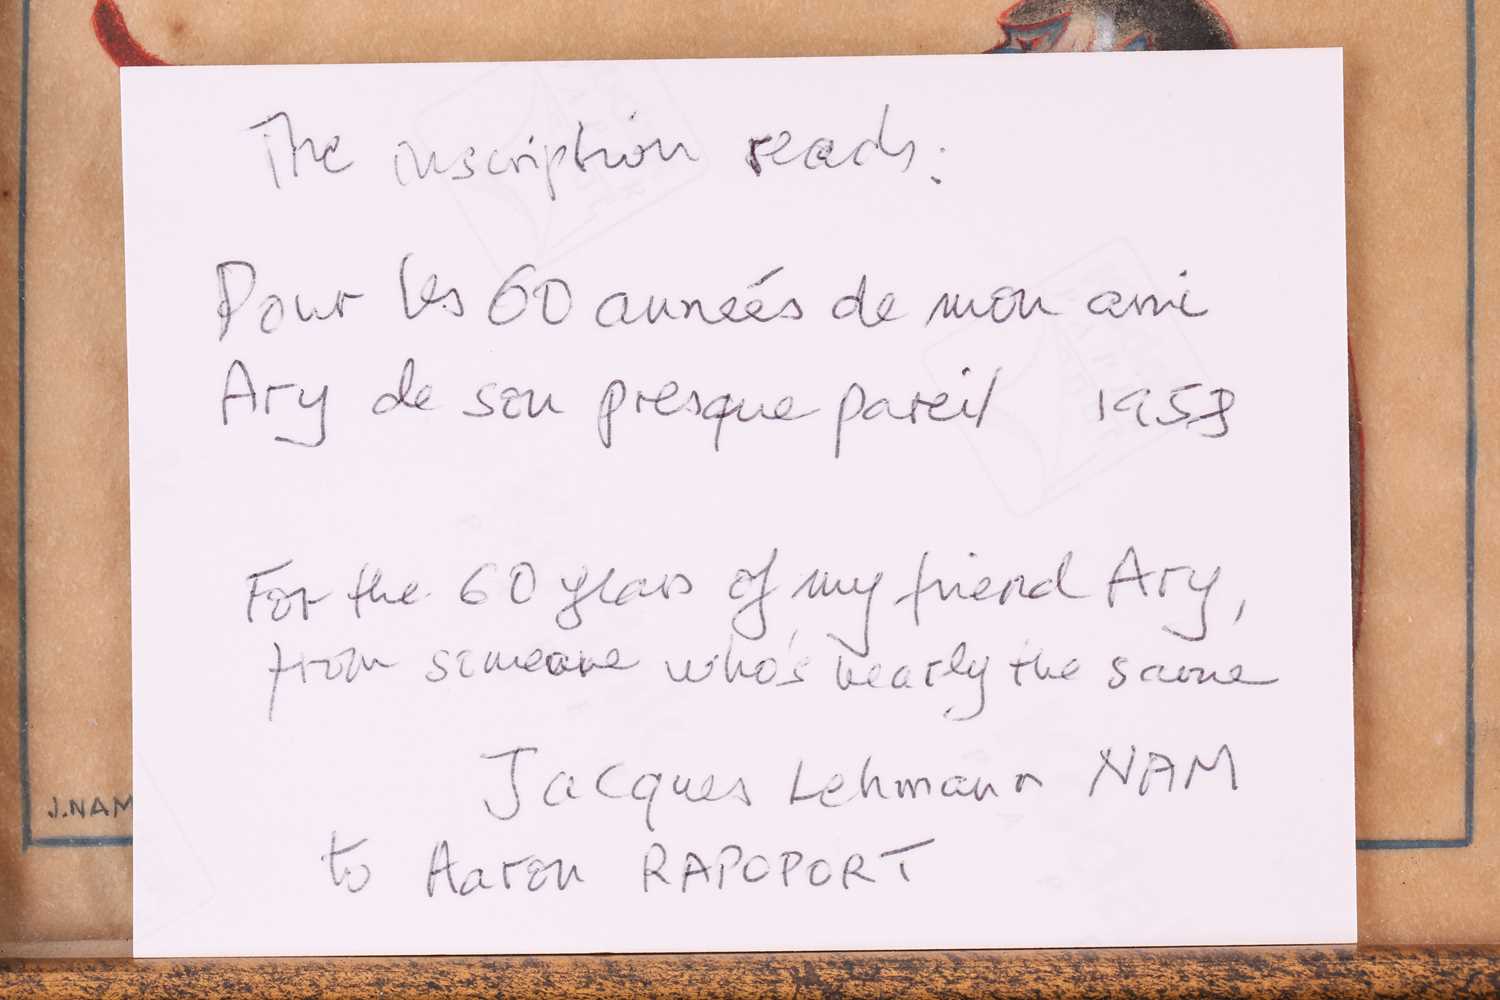 The inscription reads:
Pour les 60 années de mon ami
Ary de son presque pareil 1953
For the 60 years of my friend Ary,
from someone who's nearly the same
Jacques Lehmann NAM
to Aaron RAPOPORT
J.NAM